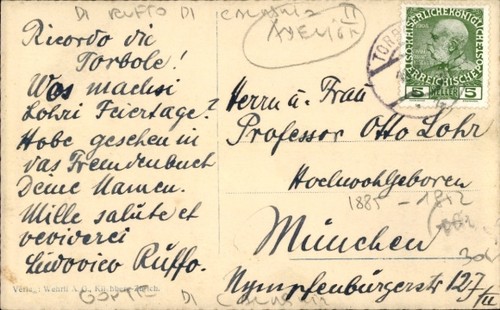 DI RUFFO DI CALABRIA II
Ricordo di
Torbole!
Was machsi
Lohri Feiertage?
Habe gesehen in
das Fremdenbuch
Deine Namen.
Mille salute et
reviderci
Ludovico Ruffo.
Verlag: Wehrli A.G., Kilchberg-Zürich.
DI
KAISERLICHE KÖNIGLICHE
ÖSTERREICHISCHE
5 HELLER 5
Herrn u. Frau
Professor Otto Lohr
Hochwohlgeboren
1885 - 1852
München
Nymphenburgerstr 127/III